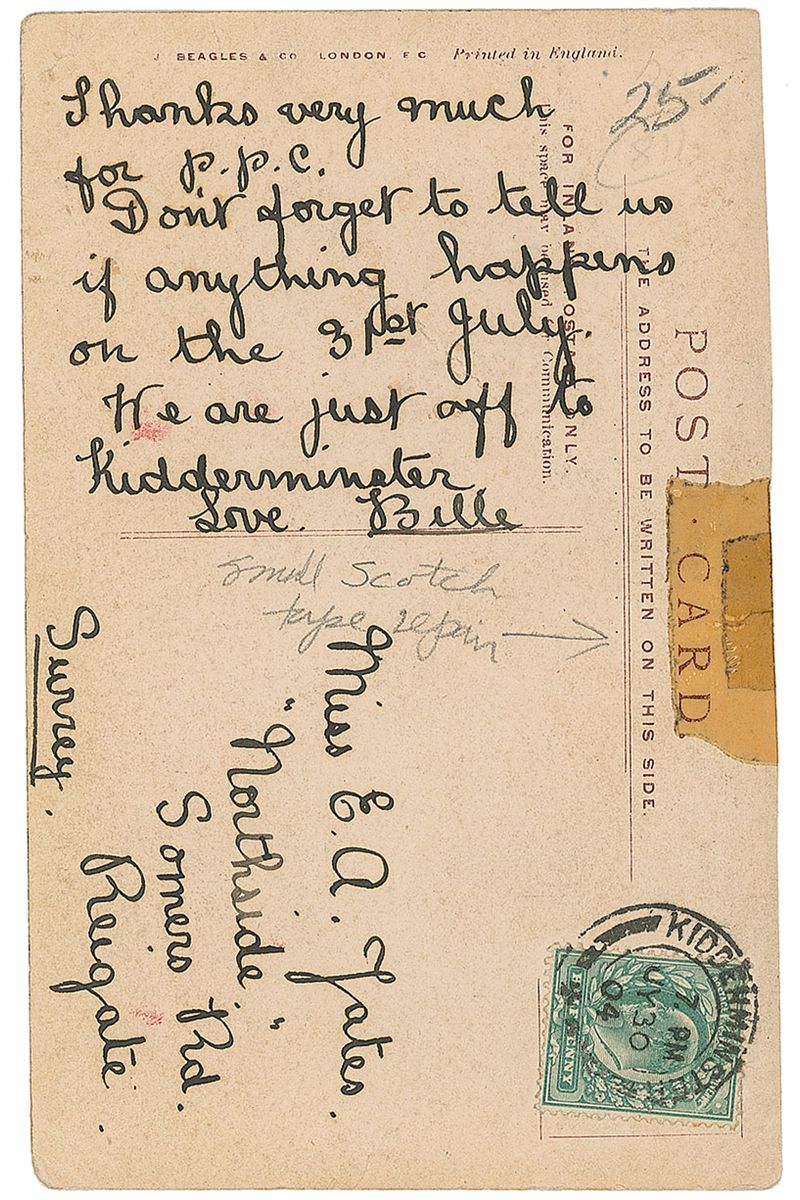 J. BEAGLES & CO. LONDON. E C Printed in England.
25-
Thanks very much
for p.p.c.
Don't forget to tell us
if anything happens
on the 31st July.
We are just off to
Kidderminster
Love. Bille
FOR INLAND POSTAGE ONLY.
This space may be used for Communication.
POST CARD
THE ADDRESS TO BE WRITTEN ON THIS SIDE.
small Scotch
tape repair →
Miss E. A. Yates.
"Northside"
Somers Rd.
Reigate.
Surrey.
KIDDERMINSTER
7 PM
JY 30
04
HALFPENNY